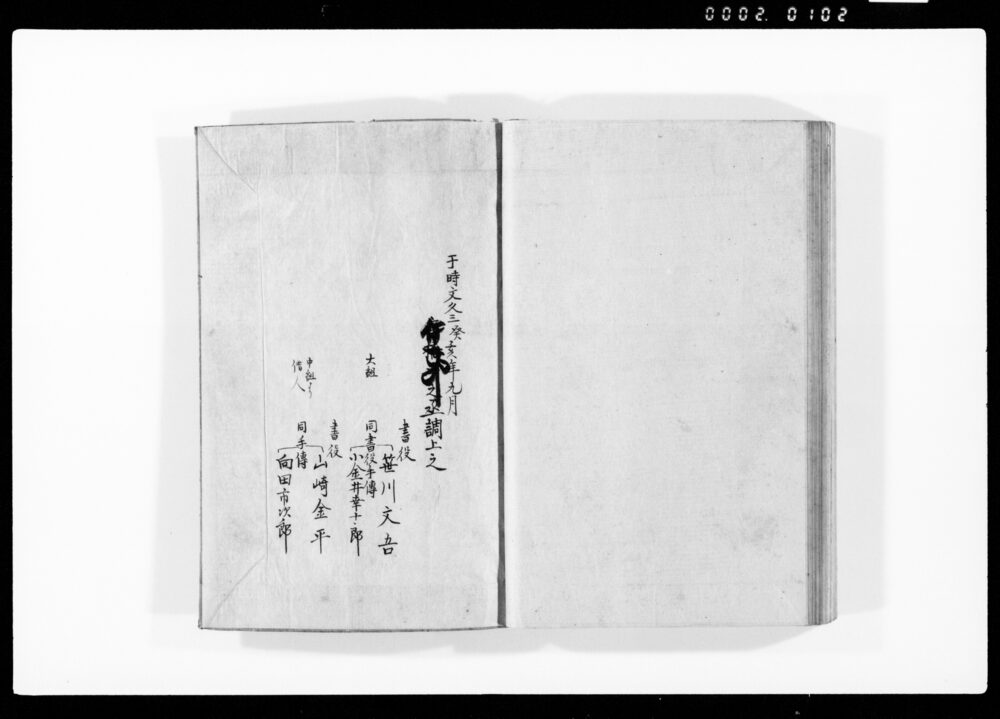 0002. 0102
于時文久三癸亥年九月
之丞調上之
書役
笹川文吾
大組
同書役手傳
小金井幸十郎
書役
山崎金平
申組ゟ
借人
同手傳
向田市次郎